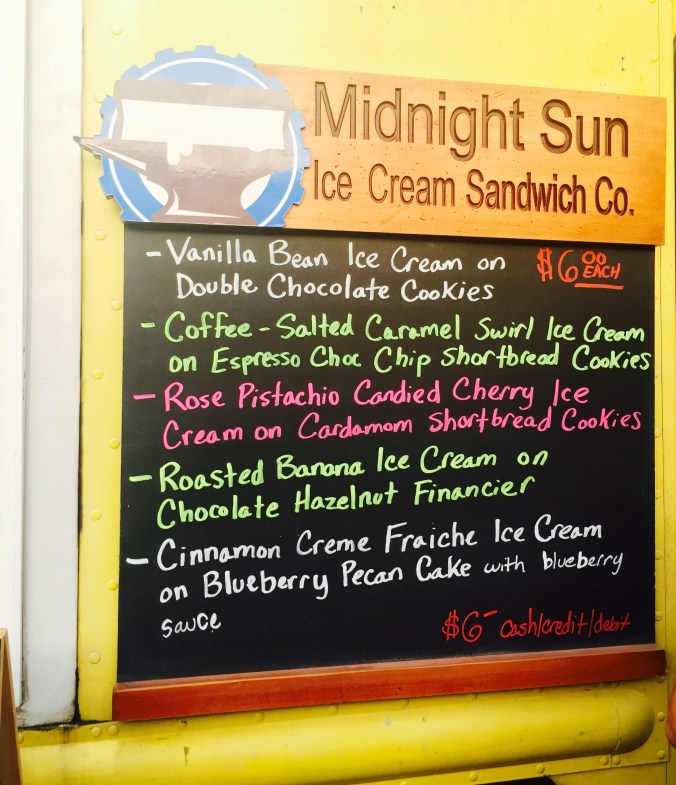 Midnight Sun
Ice Cream Sandwich Co.
- Vanilla Bean Ice Cream on
Double Chocolate Cookies
$6 00 EACH
- Coffee - Salted Caramel Swirl Ice Cream
on Espresso Choc Chip Shortbread Cookies
- Rose Pistachio Candied Cherry Ice
Cream on Cardamom Shortbread Cookies
- Roasted Banana Ice Cream on
Chocolate Hazelnut Financier
- Cinnamon Creme Fraiche Ice Cream
on Blueberry Pecan Cake with blueberry
sauce
$6- cash/credit/debit